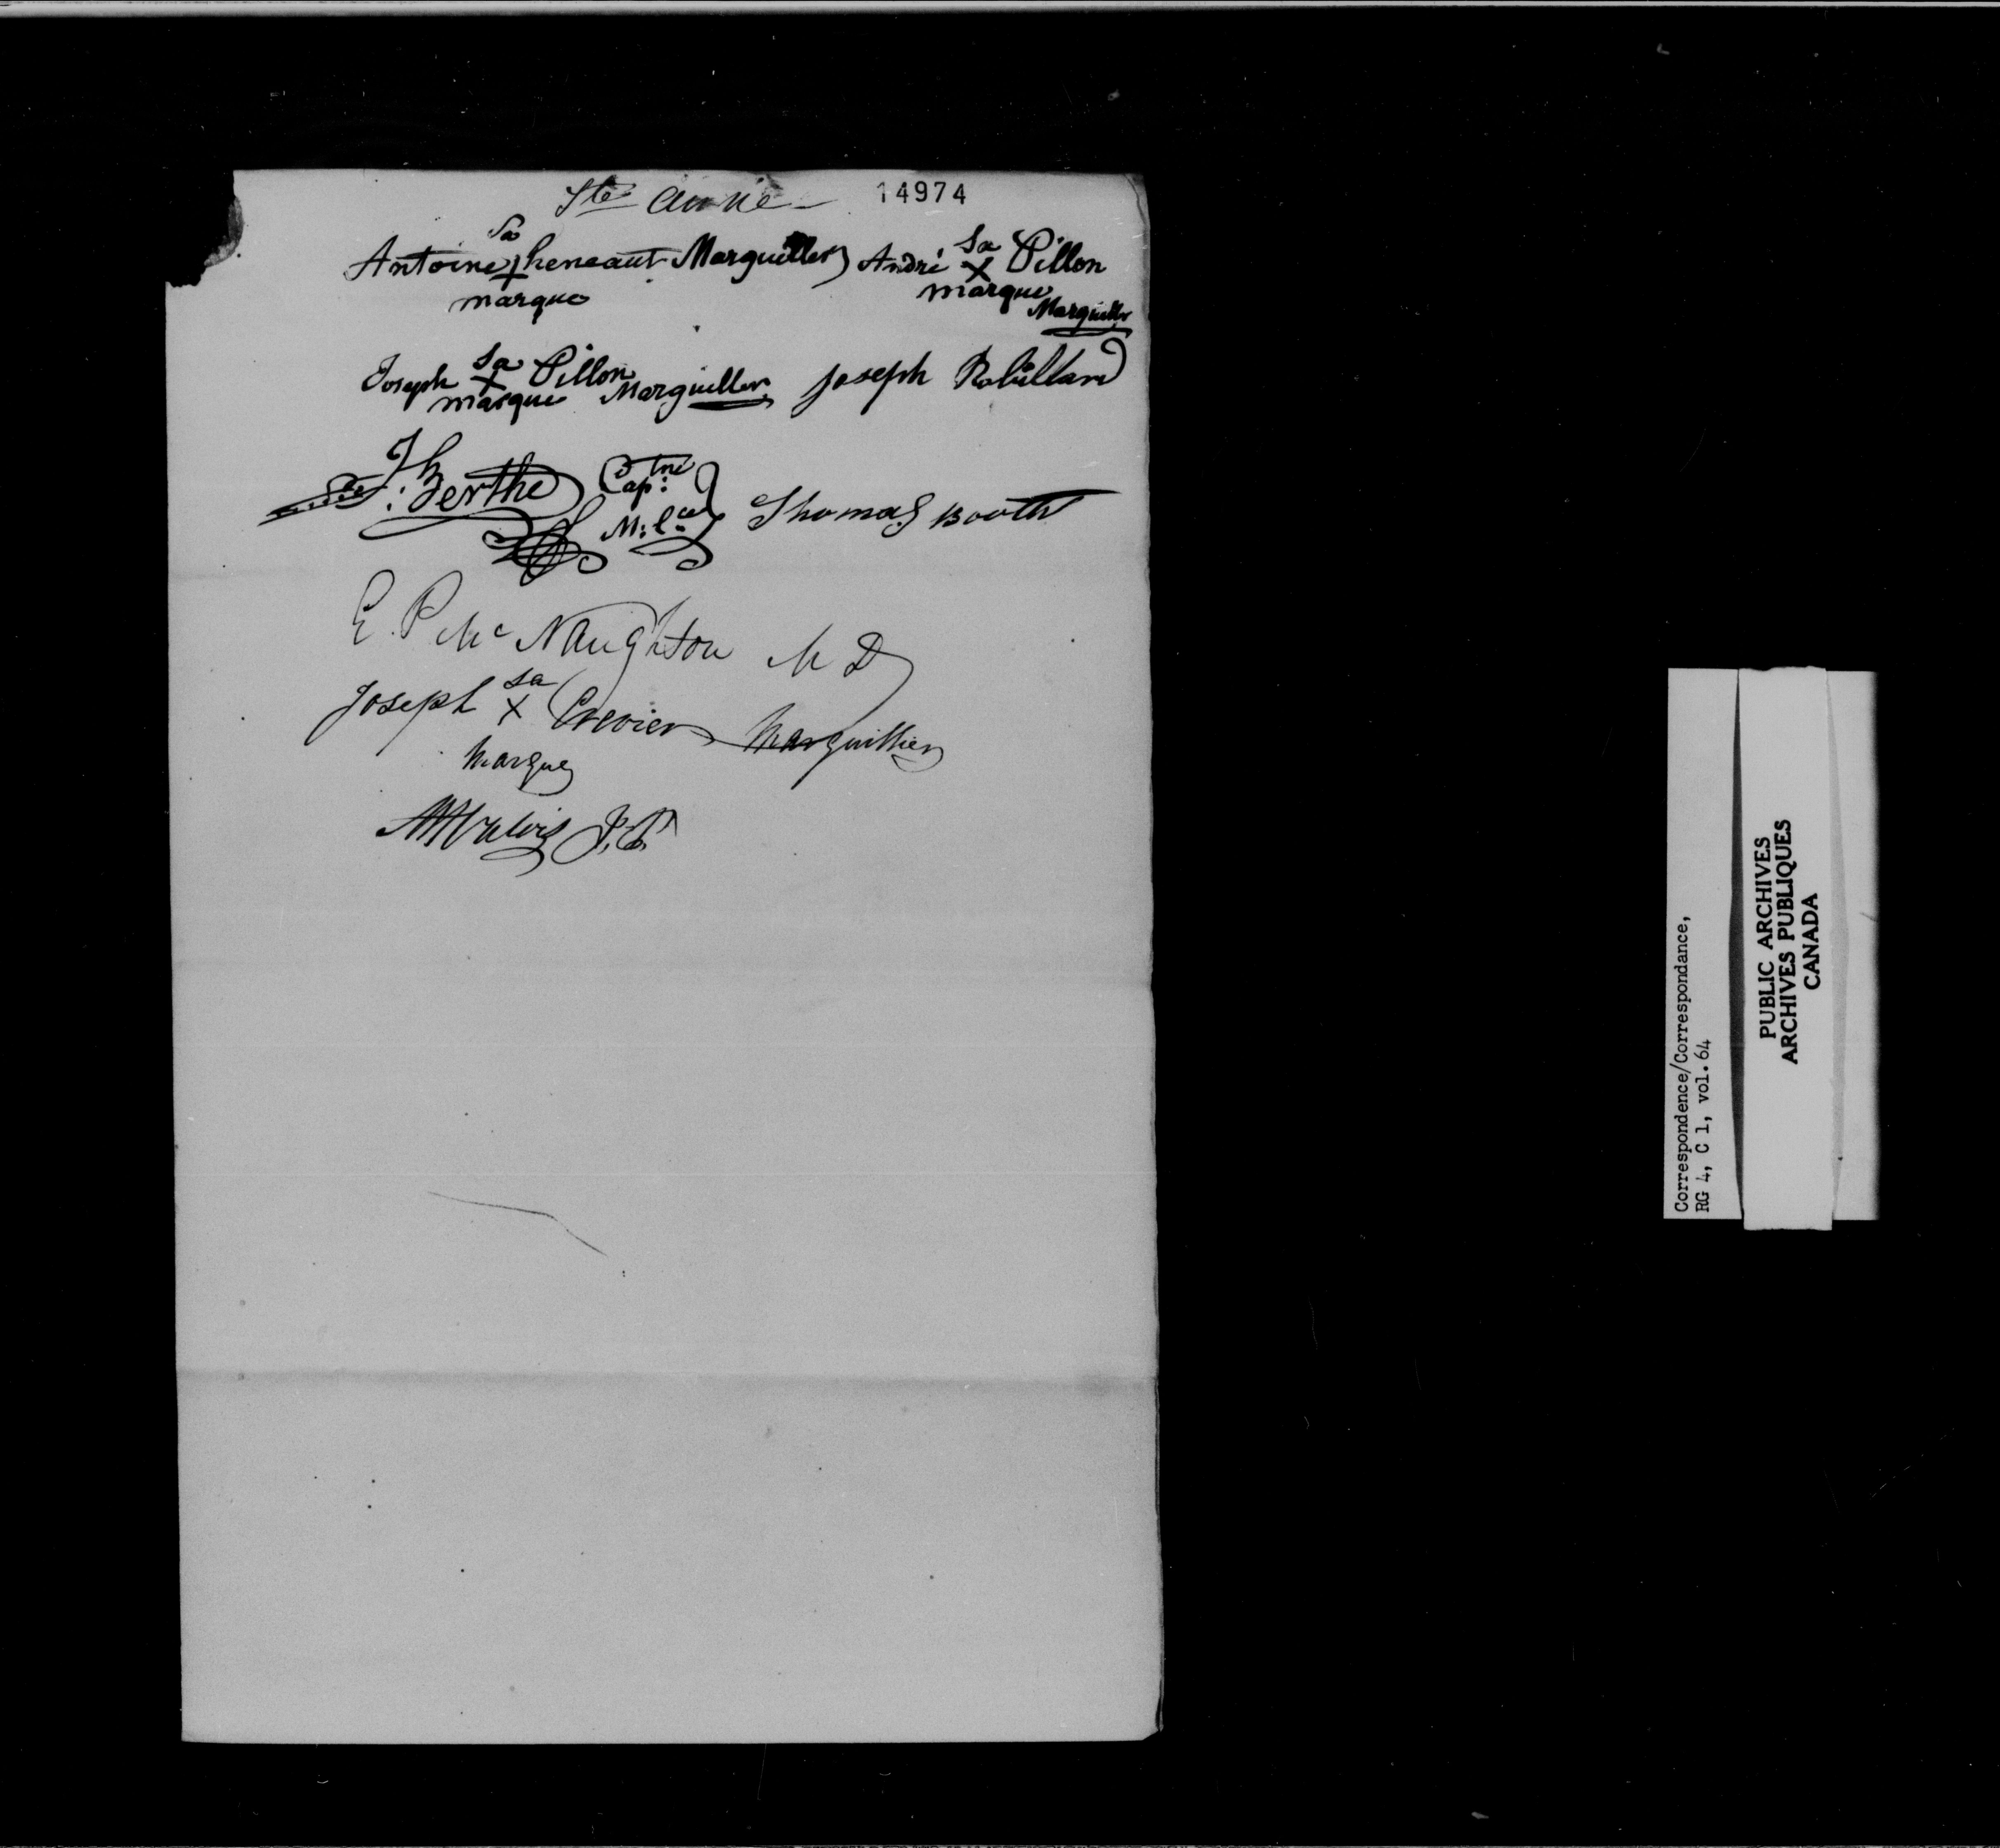 Ste Anne 14974
Sa
Antoine + heneaut Marguillier André Sa X Pillon
marque marque
Marguillier
Joseph Sa X Pillon Marguillier Joseph Robillard
marque
Berthe Captne Milce Thomas Booth
E. P. Mc Naughton M D
Joseph Sa X Crevier Marguillier
Marque
J. P.
Correspondence/Correspondance,
RG 4, C 1, vol. 64
PUBLIC ARCHIVES
ARCHIVES PUBLIQUES
CANADA